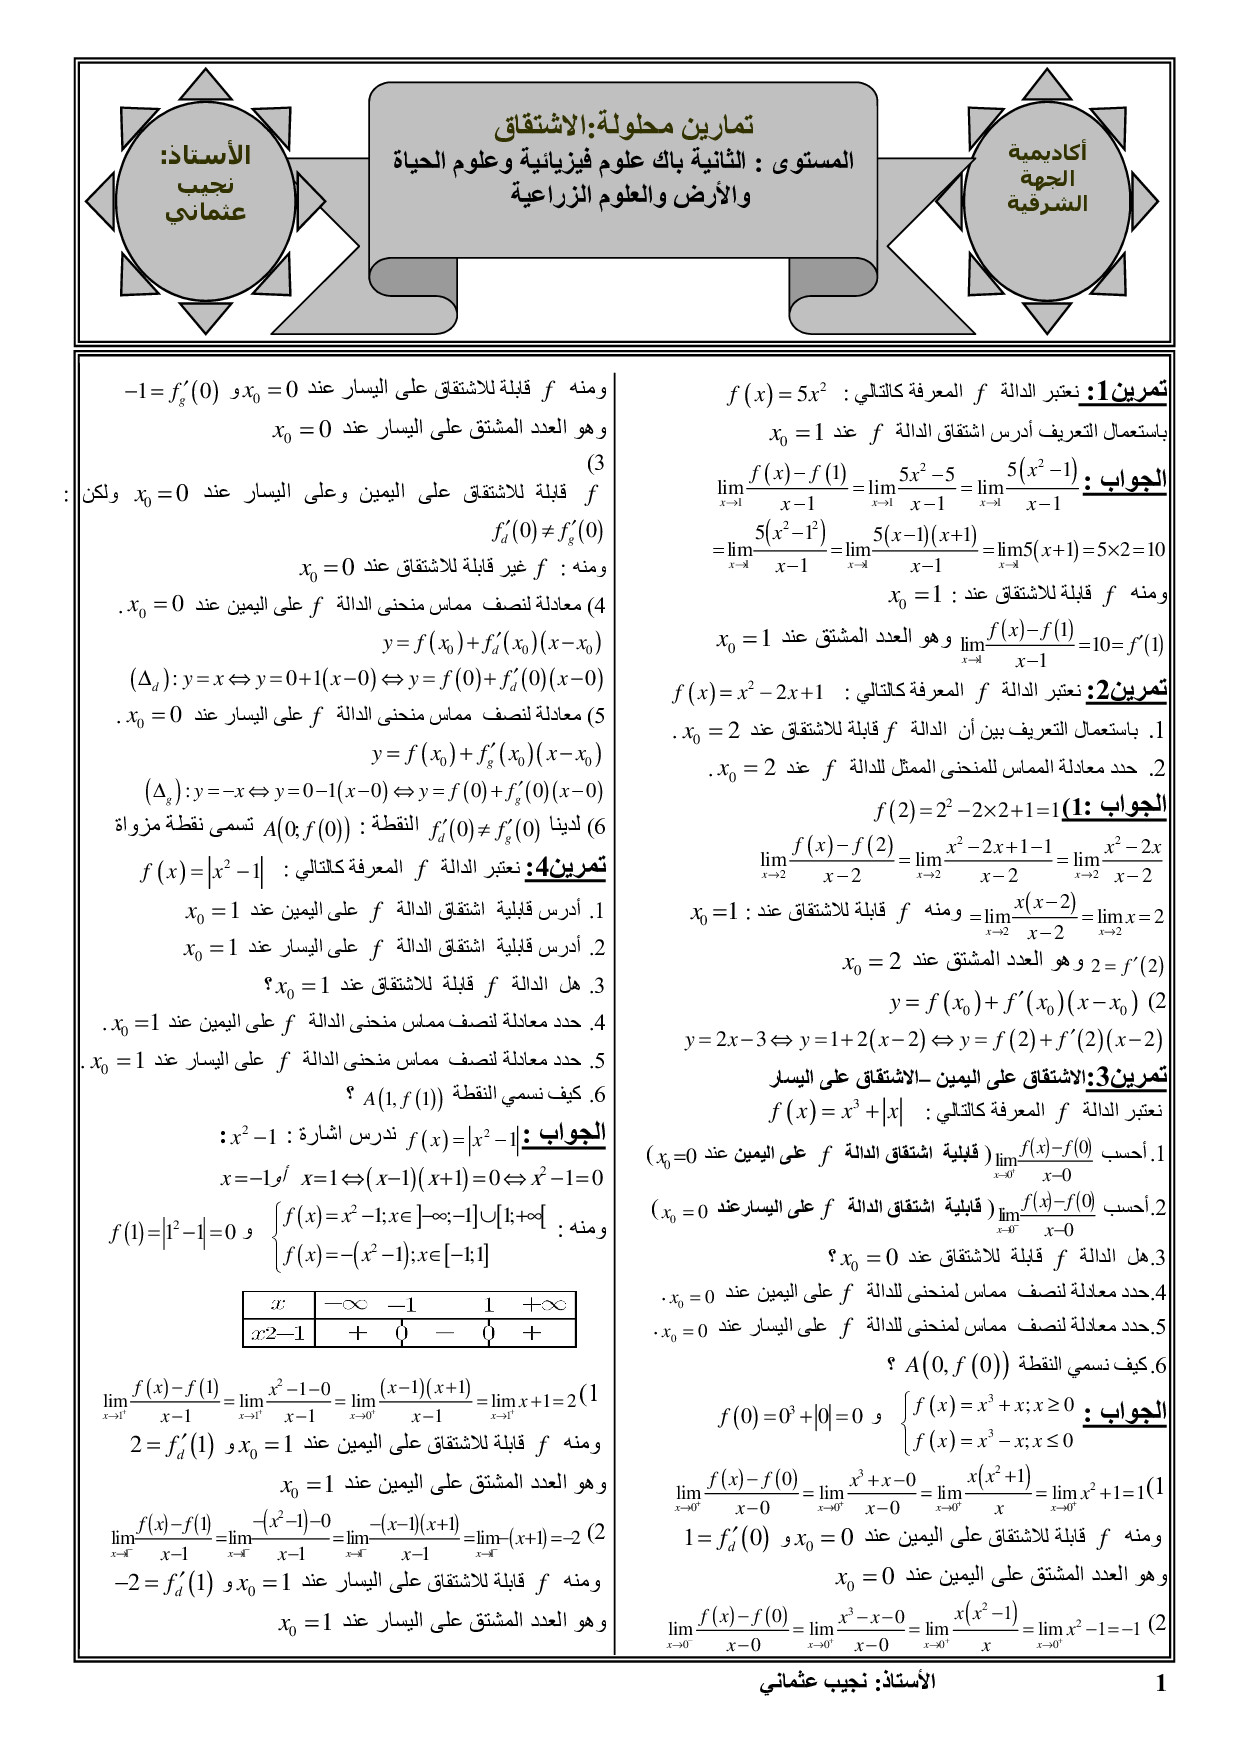 أكاديمية
الجهة
الشرقية
تمارين محلولة:الاشتقاق
المستوى : الثانية باك علوم فيزيائية وعلوم الحياة
والأرض والعلوم الزراعية
الأستاذ:
نجيب
عثماني
تمرين1: نعتبر الدالة f المعرفة كالتالي : f(x)=5x²
باستعمال التعريف أدرس اشتقاق الدالة f عند x₀=1
الجواب : lim_{x→1} (f(x)−f(1))/(x−1) = lim_{x→1} (5x²−5)/(x−1) = lim_{x→1} 5(x²−1)/(x−1)
= lim_{x→1} 5(x²−1²)/(x−1) = lim_{x→1} 5(x−1)(x+1)/(x−1) = lim_{x→1} 5(x+1) = 5×2 = 10
ومنه f قابلة للاشتقاق عند : x₀=1
lim_{x→1} (f(x)−f(1))/(x−1) = 10 = f′(1) وهو العدد المشتق عند x₀=1
تمرين2: نعتبر الدالة f المعرفة كالتالي : f(x)=x²−2x+1
1. باستعمال التعريف بين أن الدالة f قابلة للاشتقاق عند x₀=2 .
2. حدد معادلة المماس للمنحنى الممثل للدالة f عند x₀=2 .
الجواب :1) f(2)=2²−2×2+1=1
lim_{x→2} (f(x)−f(2))/(x−2) = lim_{x→2} (x²−2x+1−1)/(x−2) = lim_{x→2} (x²−2x)/(x−2)
= lim_{x→2} x(x−2)/(x−2) = lim_{x→2} x = 2 ومنه f قابلة للاشتقاق عند : x₀=1
2=f′(2) وهو العدد المشتق عند x₀=2
2) y=f(x₀)+f′(x₀)(x−x₀)
y=2x−3⇔y=1+2(x−2)⇔y=f(2)+f′(2)(x−2)
تمرين3:الاشتقاق على اليمين –الاشتقاق على اليسار
نعتبر الدالة f المعرفة كالتالي : f(x)=x³+|x|
1.أحسب lim_{x→0⁺} (f(x)−f(0))/(x−0) ( قابلية اشتقاق الدالة f على اليمين عند x₀=0 )
2.أحسب lim_{x→0⁻} (f(x)−f(0))/(x−0) ( قابلية اشتقاق الدالة f على اليسارعند x₀=0 )
3.هل الدالة f قابلة للاشتقاق عند x₀=0 ؟
4.حدد معادلة لنصف مماس لمنحنى للدالة f على اليمين عند x₀=0 .
5.حدد معادلة لنصف مماس لمنحنى للدالة f على اليسار عند x₀=0 .
6.كيف نسمي النقطة A(0, f(0)) ؟
الجواب : { f(x)=x³+x; x≥0 و f(0)=0³+|0|=0
f(x)=x³−x; x≤0
1) lim_{x→0⁺} (f(x)−f(0))/(x−0) = lim_{x→0⁺} (x³+x−0)/(x−0) = lim_{x→0⁺} x(x²+1)/x = lim_{x→0⁺} x²+1=1
ومنه f قابلة للاشتقاق على اليمين عند x₀=0 و 1=f′_d(0)
وهو العدد المشتق على اليمين عند x₀=0
2) lim_{x→0⁻} (f(x)−f(0))/(x−0) = lim_{x→0⁺} (x³−x−0)/(x−0) = lim_{x→0⁺} x(x²−1)/x = lim_{x→0⁺} x²−1=−1
ومنه f قابلة للاشتقاق على اليسار عند x₀=0 و −1=f′_g(0)
وهو العدد المشتق على اليسار عند x₀=0
3)
f قابلة للاشتقاق على اليمين وعلى اليسار عند x₀=0 ولكن :
f′_d(0)≠f′_g(0)
ومنه : f غير قابلة للاشتقاق عند x₀=0
4) معادلة لنصف مماس منحنى الدالة f على اليمين عند x₀=0 .
y=f(x₀)+f′_d(x₀)(x−x₀)
(Δ_d): y=x⇔y=0+1(x−0)⇔y=f(0)+f′_d(0)(x−0)
5) معادلة لنصف مماس منحنى الدالة f على اليسار عند x₀=0 .
y=f(x₀)+f′_g(x₀)(x−x₀)
(Δ_g): y=−x⇔y=0−1(x−0)⇔y=f(0)+f′_g(0)(x−0)
6) لدينا f′_d(0)≠f′_g(0) النقطة : A(0; f(0)) تسمى نقطة مزواة
تمرين4: نعتبر الدالة f المعرفة كالتالي : f(x)=|x²−1|
1. أدرس قابلية اشتقاق الدالة f على اليمين عند x₀=1
2. أدرس قابلية اشتقاق الدالة f على اليسار عند x₀=1
3. هل الدالة f قابلة للاشتقاق عند x₀=1 ؟
4. حدد معادلة لنصف مماس منحنى الدالة f على اليمين عند x₀=1 .
5. حدد معادلة لنصف مماس منحنى الدالة f على اليسار عند x₀=1 .
6. كيف نسمي النقطة A(1, f(1)) ؟
الجواب : f(x)=|x²−1| ندرس اشارة : x²−1 :
x=−1 أو x=1⇔(x−1)(x+1)=0⇔x²−1=0
ومنه : { f(x)=x²−1; x∈]−∞;−1]∪[1;+∞[ و f(1)=|1²−1|=0
f(x)=−(x²−1); x∈[−1;1]
x −∞ −1 1 +∞
x2−1 + 0 − 0 +
1) lim_{x→1⁺} (f(x)−f(1))/(x−1) = lim_{x→1⁺} (x²−1−0)/(x−1) = lim_{x→0⁺} (x−1)(x+1)/(x−1) = lim_{x→1⁺} x+1=2
ومنه f قابلة للاشتقاق على اليمين عند x₀=1 و 2=f′_d(1)
وهو العدد المشتق على اليمين عند x₀=1
2) lim_{x→1⁻} (f(x)−f(1))/(x−1) = lim_{x→1⁻} (−(x²−1)−0)/(x−1) = lim_{x→1⁻} −(x−1)(x+1)/(x−1) = lim_{x→1⁻} −(x+1)=−2
ومنه f قابلة للاشتقاق على اليسار عند x₀=1 و −2=f′_d(1)
وهو العدد المشتق على اليسار عند x₀=1
الأستاذ: نجيب عثماني 1